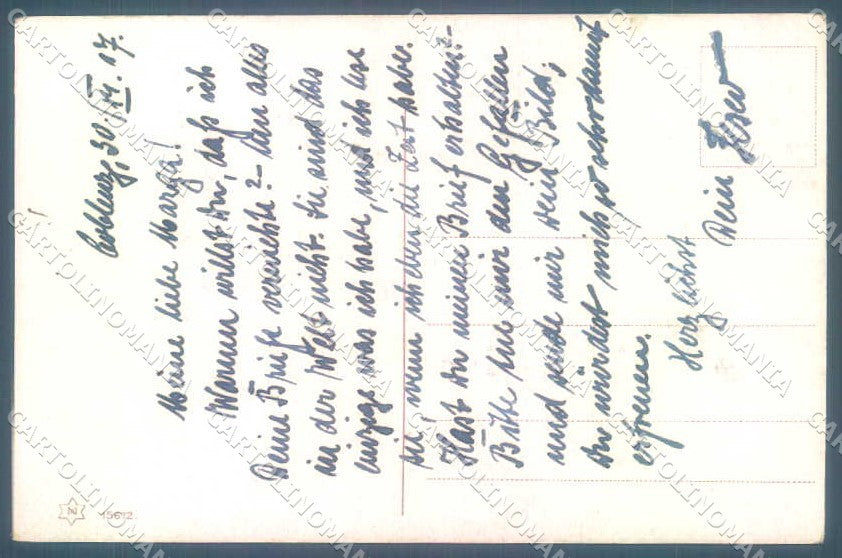 Coblenz, 30. VI. 17.
Meine liebe Marga!
Warum willst Du, daß ich
Deine Briefe vernichte? - Um alles
in der Welt nicht. Sie sind das
einzige was ich habe, und ich lese
sie, wenn ich eben die Zeit habe.
Hast Du meinen Brief erhalten? -
Bitte tue mir den Gefallen
und sende mir dein Bild,
Du würdest mich so sehr damit
erfreuen.
Herzlichst
Dein
15612
CARTOLINOMANIA